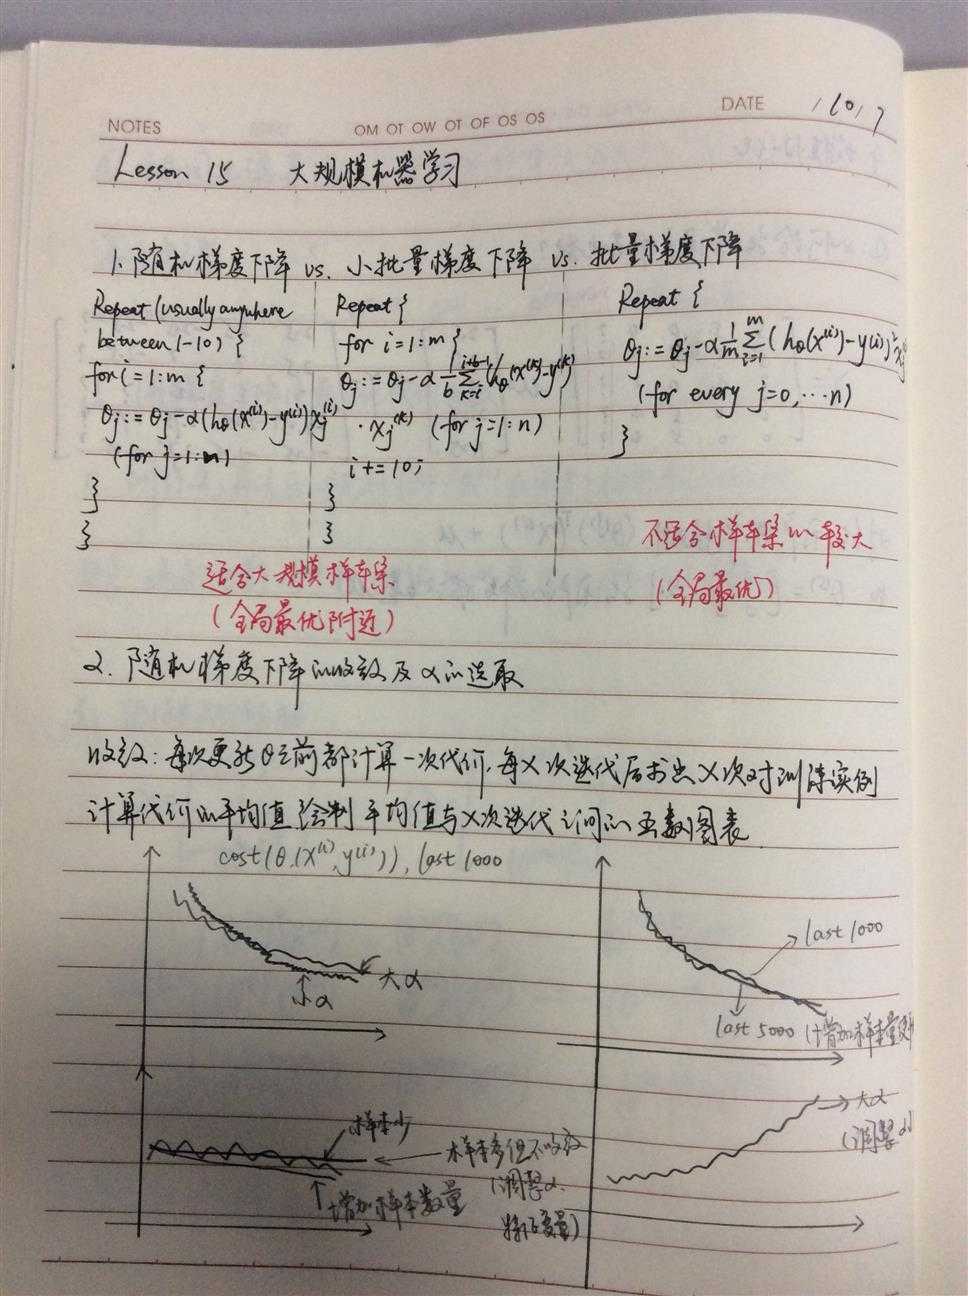 NOTES
OM OT OW OT OF OS OS
DATE
Lesson 15 大规模机器学习
1. 随机梯度下降 vs. 小批量梯度下降 vs. 批量梯度下降
Repeat (usually anywhere
between 1-10) {
for i=1:m {
θj := θj-α(hθ(x^(i))-y^(i))xj^(i)
(for j=1:n)
}
}
Repeat {
for i=1:m {
θj := θj-α 1/b Σ_{k=i}^{i+b-1}(hθ(x^(k))-y^(k))
· xj^(k) (for j=1:n)
i+=10;
}
}
Repeat {
θj := θj-α 1/m Σ_{i=1}^{m}(hθ(x^(i))-y^(i))
(for every j=0,…n)
}
适合大规模样本集
(全局最优附近)
不适合样本集m较大
(全局最优)
2. 随机梯度下降的收敛及α的选取
收敛: 每次更新θ之前都计算一次代价, 每X次迭代后求出X次对训练实例
计算代价的平均值 绘制平均值与X次迭代之间的函数图表
cost(θ,(x^(i),y^(i))), last 1000
大α
小α
last 1000
last 5000 (增加样本量
样本少
样本多但不收敛
(调整α、
特征变量)
增加样本数量
大α
(调整α)